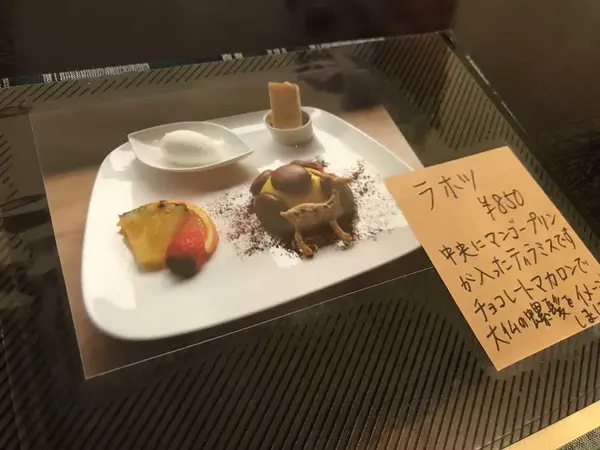 ラホツ
¥850
中央にマンゴープリン
が入ったティラミスです
チョコレートマカロンで
大仏の螺髪をイメー
しまし